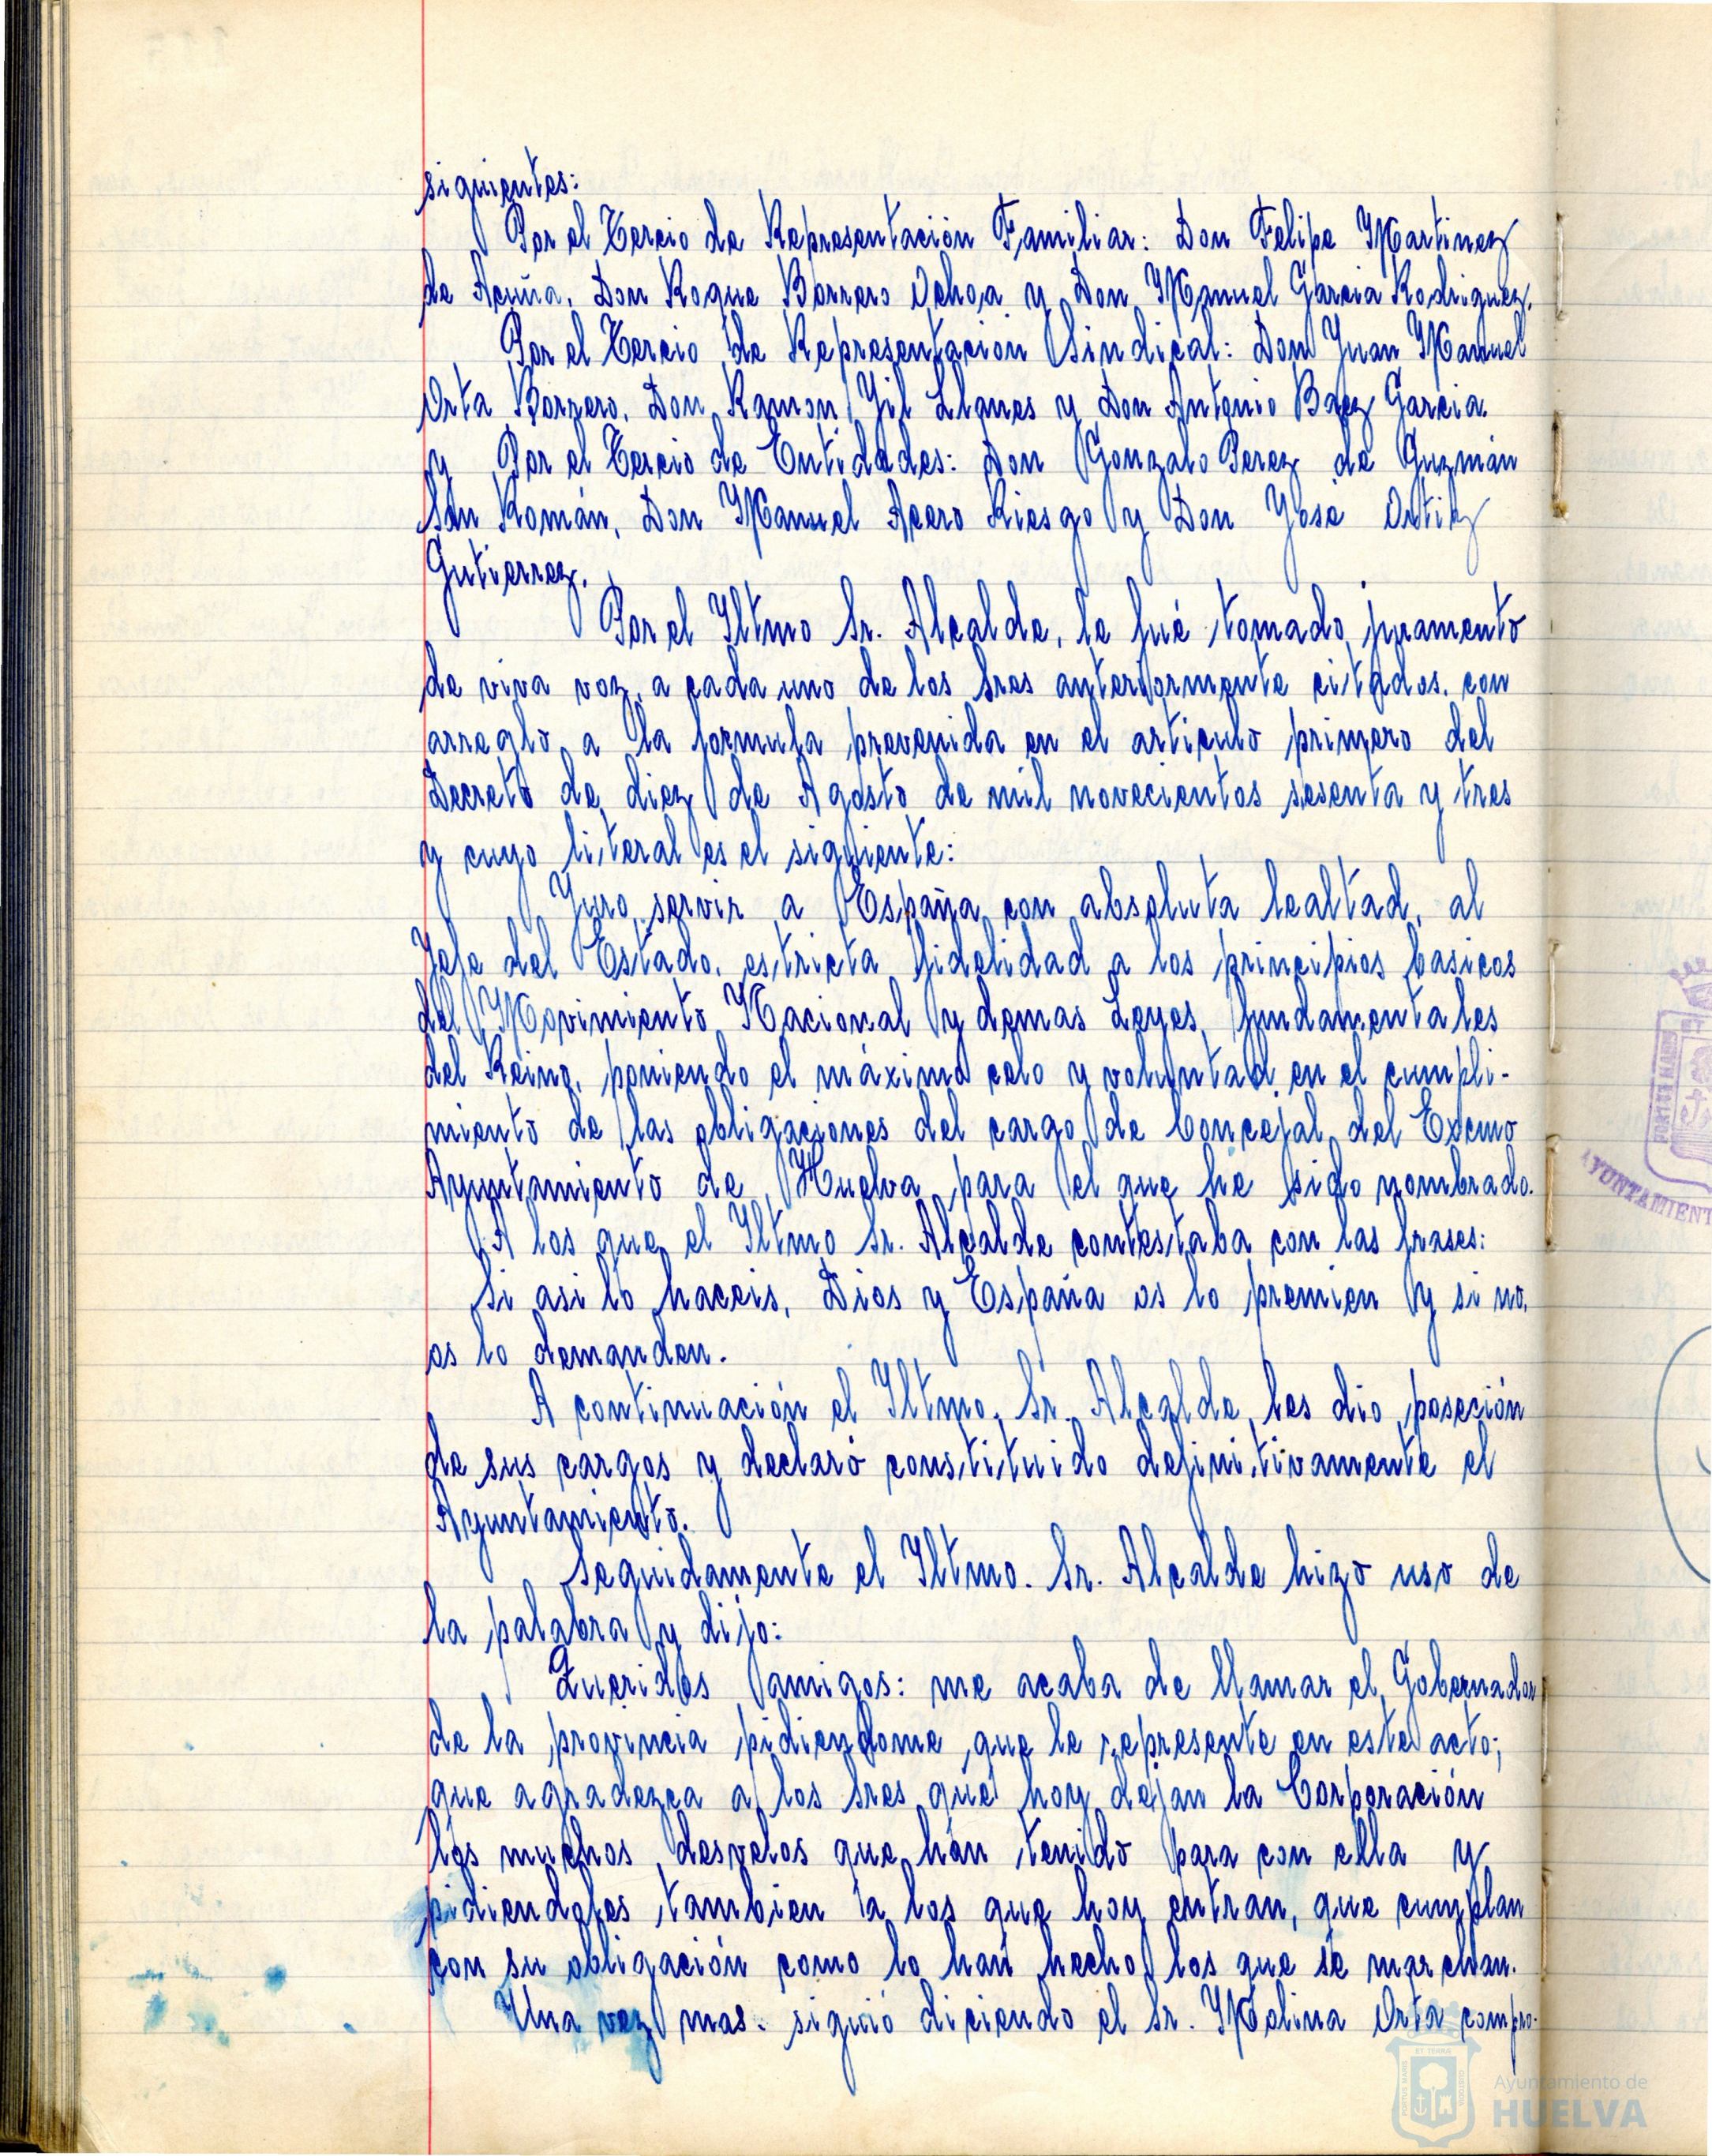 siguientes:
Por el Tercio de Representación Familiar: Don Felipe Martinez
de Acuña, Don Roque Borrero Ochoa y Don Manuel Garcia Rodriguez.
Por el Tercio de Representacion Sindical: Don Juan Manuel
Orta Borrero, Don Ramon Gil Llanes y Don Antonio Baez Garcia.
y Por el Tercio de Entidades: Don Gonzalo Perez de Guzmán
San Román, Don Manuel Acero Riesgo y Don José Ortiz
Gutierrez.
Por el Iltmo Sr. Alcalde, le fué tomado juramento
de viva voz, a cada uno de los Sres anteriormente citados, con
arreglo a la formula prevenida en el articulo primero del
Decreto de diez de Agosto de mil novecientos sesenta y tres
y cuyo literal es el siguiente:
Juro servir a España con absoluta lealtad, al
Jefe del Estado, estricta fidelidad a los principios basicos
del Movimiento Nacional y demas Leyes fundamentales
del Reino, poniendo el máximo celo y voluntad en el cumpli-
miento de las obligaciones del cargo de Concejal del Excmo
Ayuntamiento de Huelva para el que he sido nombrado.
A los que el Iltmo Sr. Alcalde contestaba con las frases:
Si asi lo haceis, Dios y España os lo premien y si no,
os lo demanden.
A continuación el Iltmo. Sr. Alcalde les dio poseción
de sus cargos y declaró constituido definitivamente el
Ayuntamiento.
Seguidamente el Iltmo. Sr. Alcalde hizo uso de
la palabra y dijo:
Queridos amigos: me acaba de llamar el Gobernador
de la provincia pidiendome que le represente en este acto;
que agradezca a los Sres que hoy dejan la Corporación
los muchos desvelos que han tenido para con ella y
pidiendoles tambien a los que hoy entran, que cumplan
con su obligación como lo han hecho los que se marchan.
Una vez mas. siguió diciendo el Sr. Molina Orta compro-
PORTUS MARIS
AYUNTAMIENT
Ayuntamiento de
HUELVA